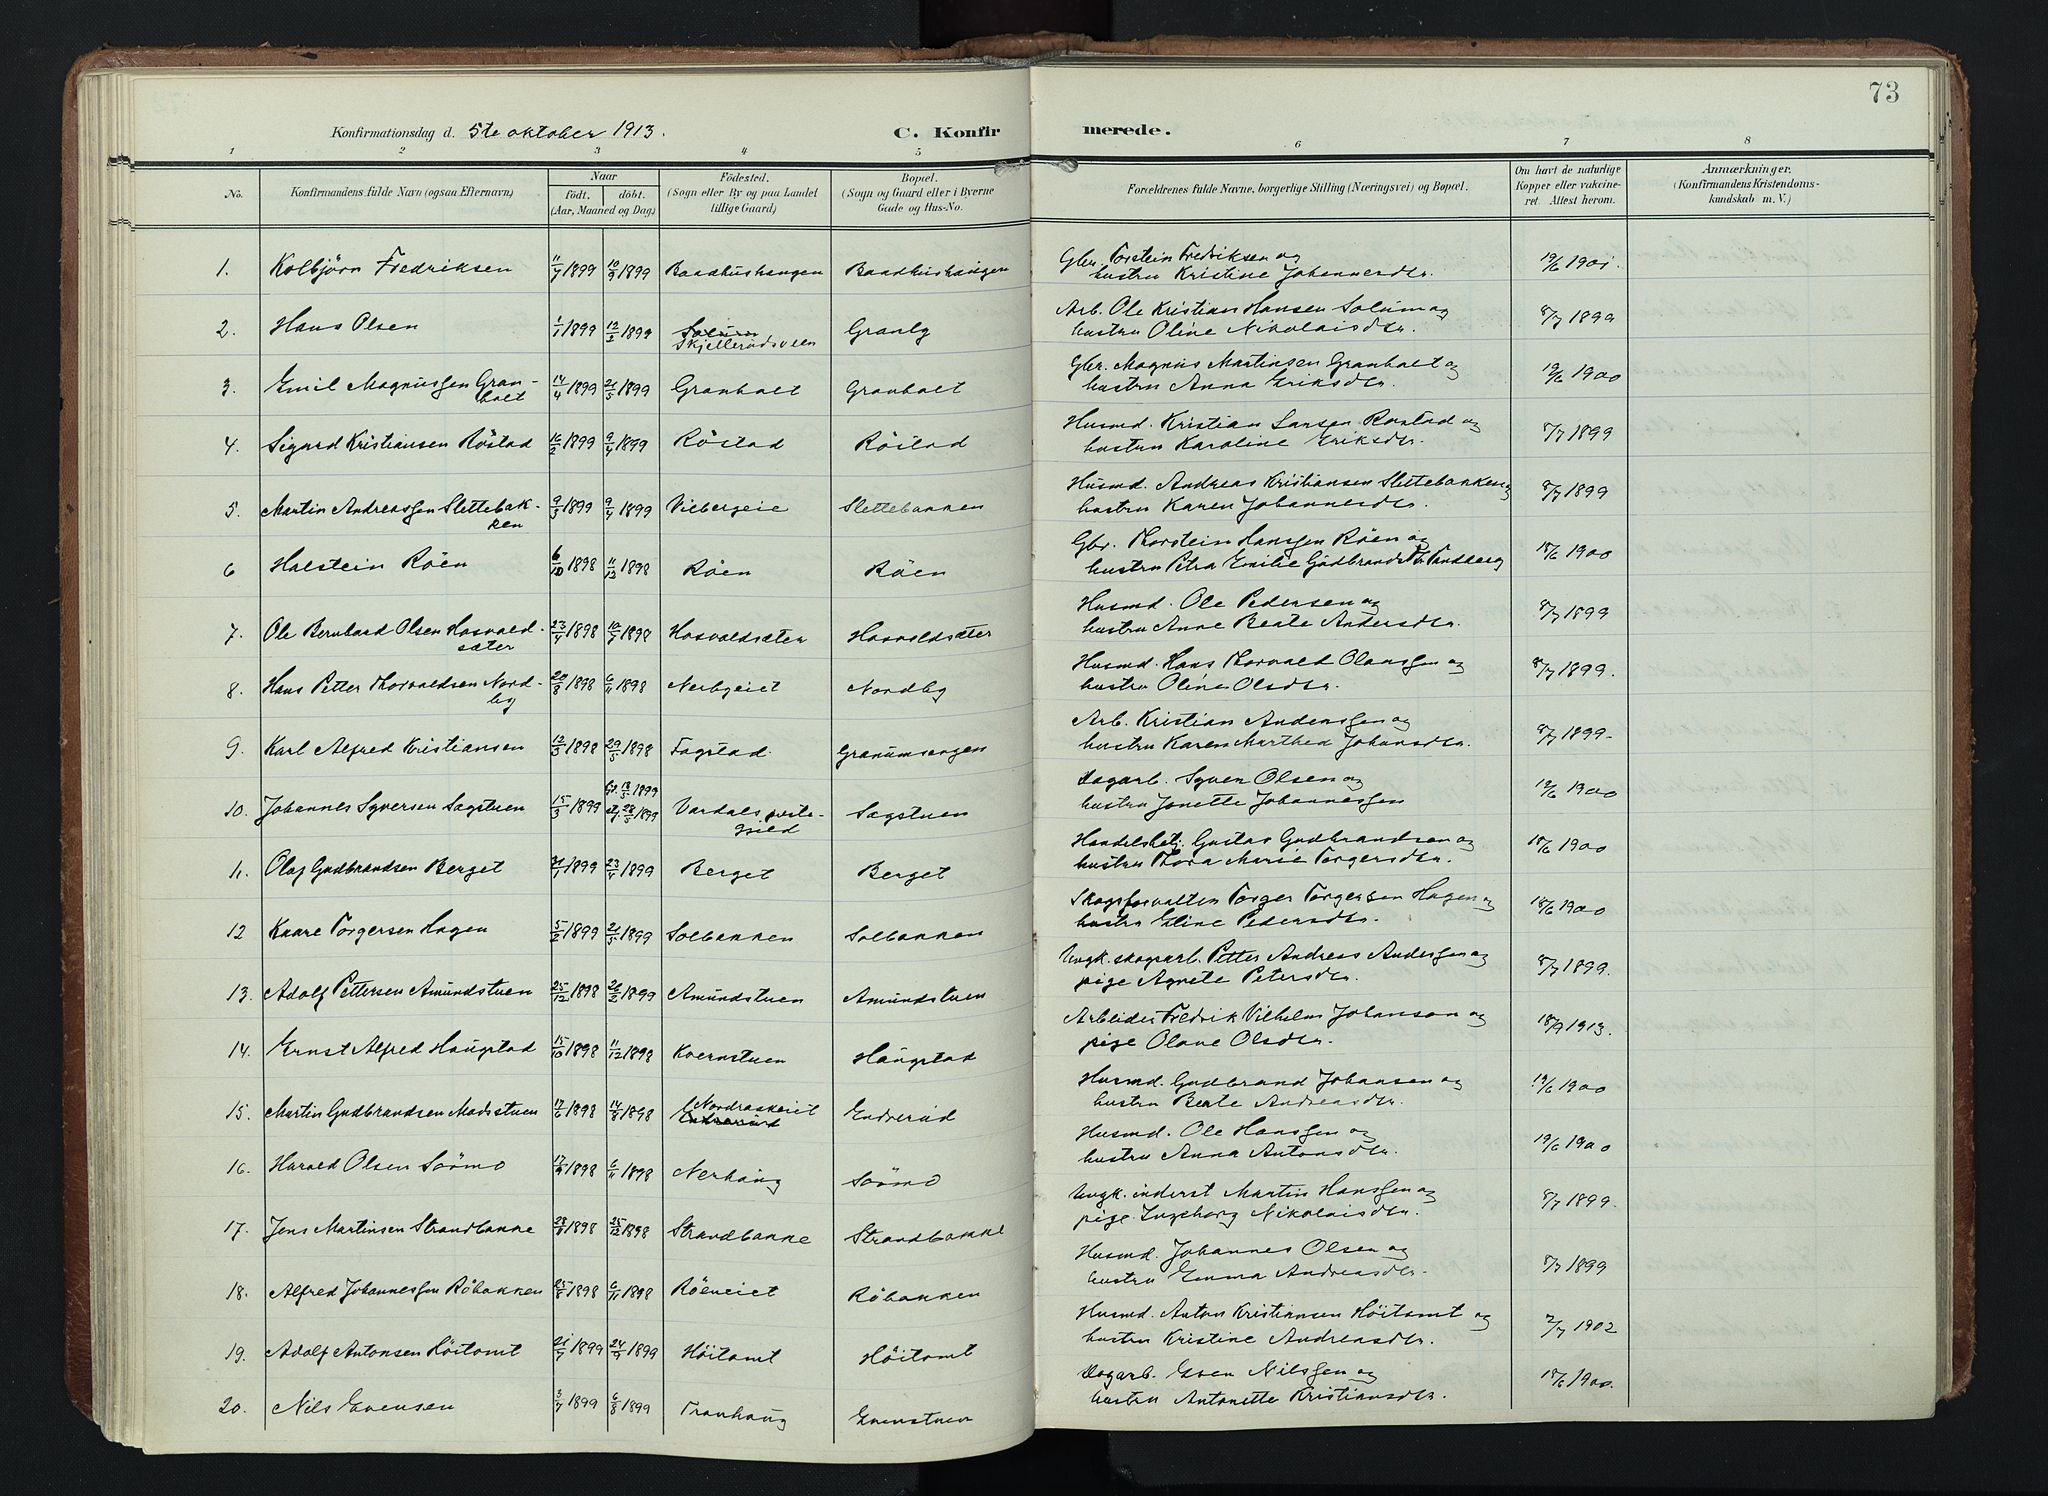 73
Konfirmationsdag d. 5te oktober 1913.
C. Konfirmerede.
1 2 3 4 5 6 7 8
No. Konfirmandens fulde Navn (ogsaa Efternavn). Naar födt. döbt. (Aar, Maaned og Dag.) Födested. (Sogn eller By og paa Landet tillige Gaard) Bopæl. (Sogn og Gaard eller i Byerne Gade og Hus-No. Forældrenes fulde Navne, borgerlige Stilling (Næringsvei) og Bopæl. Om havt de naturlige Kopper eller vakcineret. Attest herom. Anmærkninger. (Konfirmandens Kristendomskundskab m. V.)
1. Kolbjörn Fredriksen 11/7 1899 10/9 1899 Baadhushaugen Baadhushaugen Gbr. Torstein Fredriksen og
hustru Kristine Johannesdtr. 19/6 1901.
2. Hans Olsen 1/1 1899 12/2 1899 Solum Skjellerudsveen Granly Arb. Ole Kristian Hansen Solum og
hustru Oline Nikolaisdtr. 8/7 1899
3. Emil Magnussen Granholt 14/4 1899 21/5 1899 Granholt Granholt Gbr. Magnus Martinsen Granholt og
hustru Anna Eriksdtr. 19/6 1900
4. Sigurd Kristiansen Röstad 16/2 1899 9/4 1899 Röstad Röstad Husmd. Kristian Larsen Röstad og
hustru Karoline Eriksdtr. 8/7 1899
5. Martin Andreassen Slettebakken 9/3 1899 9/4 1899 Vilbergeie Slettebakken Husmd. Andreas Kristiansen Slettebakken og
hustru Karen Johannesdtr. 8/7 1899
6 Halstein Röen 6/10 1898 11/12 1898 Röen Röen Gbr. Thorstein Hanssen Röen og
hustru Petra Emilie Gudbrandsdtr. Tandberg 18/6 1900
7. Ole Bernhard Olsen Hasvaldsæter 23/4 1898 10/7 1898 Hasvaldsæter Hasvaldsæter Husmd. Ole Pedersen og
hustru Anne Beate Andersdtr. 8/7 1899
8. Hans Petter Thorvaldsen Nordby 20/8 1898 6/11 1898 Nerbyeiet Nordby Husmd. Hans Thorvald Olaussen og
hustru Oline Olsdtr. 8/7 1899.
9. Karl Alfred Kristiansen 12/3 1898 29/5 1898 Fagstad Granumsengen Arb. Kristian Anderssen og
hustru Karen Marthea Johansdtr. 8/7 1899.
10. Johannes Syversen Sagstuen 15/3 1899 18/3 1899 28/5 1899 Vardals prestegjeld Sagstuen Dagarb. Syver Olsen og
hustru Jonette Johannessen 12/6 1900
11. Olaf Gudbrandsen Berget 21/1 1899 23/4 1899 Berget Berget Handelsbetj. Gustav Gudbrandsen og
hustru Thora Marie Torgersdtr. 18/6 1900
12 Kaare Torgersen Hagen 5/2 1899 21/5 1899 Solbakken Solbakken Skogsforvalter Torger Torgersen Hagen og
hustru Eline Pedersdtr. 18/6 1900
13. Adolf Pettersen Amundstuen 25/12 1898 26/2 1899 Amundstuen Amundstuen Ungk. skogsarb. Petter Andreas Andersen og
pige Agnete Petersdtr. 8/7 1899.
14. Ernst Alfred Haugstad 15/10 1898 11/12 1898 Kvernstuen Haugstad Arbeider Fredrik Vilhelm Johanson og
pige Olave Olsdtr. 18/9 1913.
15. Martin Gudbrandsen Madsstuen 17/6 1898 14/8 1898 Nordraskeiet Endrerud Endrerud Husmd. Gudbrand Johansen og
hustru Beate Andreasdtr. 19/6 1900
16. Harald Olsen Sörmo 17/9 1898 6/11 1898 Nerhaug Sörmo Husmd. Ole Hanssen og
hustru Anna Antonsdtr. 19/6 1900
17. Jens Martinsen Strandbakke 28/8 1898 25/12 1898 Strandbakke Strandbakke Ungk. inderst Martin Hanssen og
pige Ingeborg Nikolaisdtr. 8/7 1899.
18. Alfred Johannessen Röbakken 25/8 1898 6/11 1898 Röeneiet Röbakken Husmd. Johannes Olsen og
hustru Emma Andreasdtr. 8/7 1899
19. Adolf Antonsen Höitomt 21/7 1899 24/9 1899 Höitomt Höitomt Husmd. Anton Kristiansen Höitomt og
hustru Kristine Andreasdtr. 2/7 1902
20. Nils Evensen 3/7 1899 6/8 1899 Tranhaug Evenstuen Dagarb. Even Nilssen og
hustru Antonette Kristiansdtr. 18/6 1900.